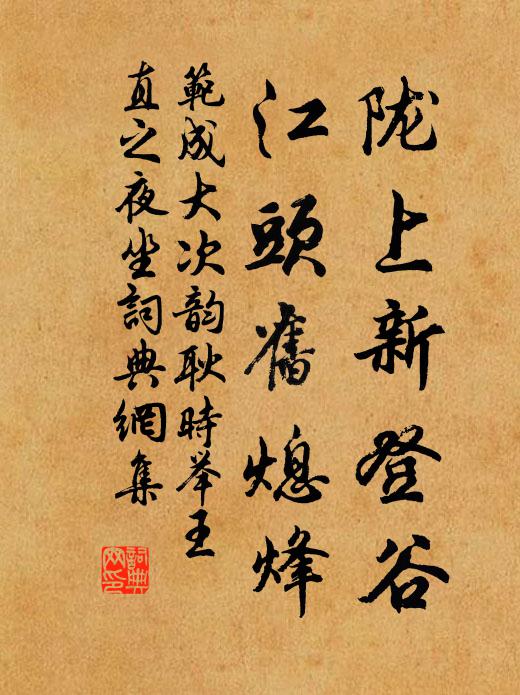 陇上新登谷
江頭舊熄烽
範成大次韵耿時举王
直之夜坐詞典網集
詞典網印